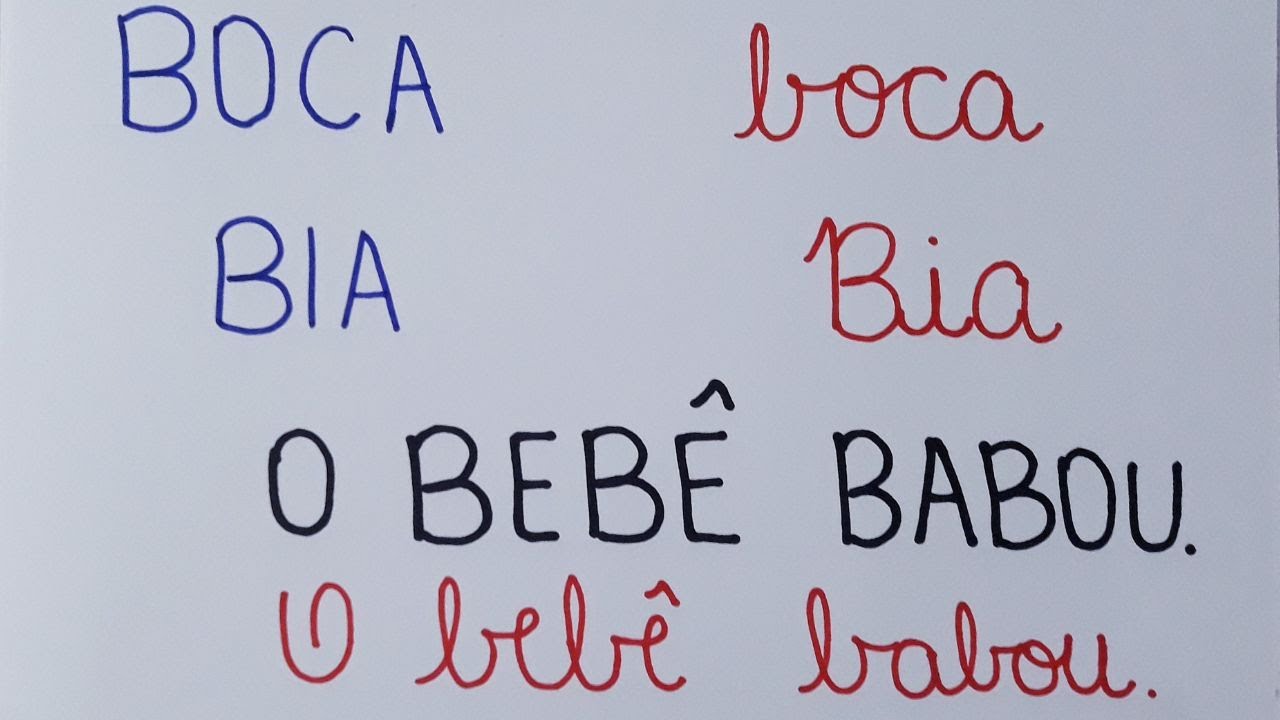 BOCA boca
BIA Bia
O BEBÊ BABOU.
O bebê babou.